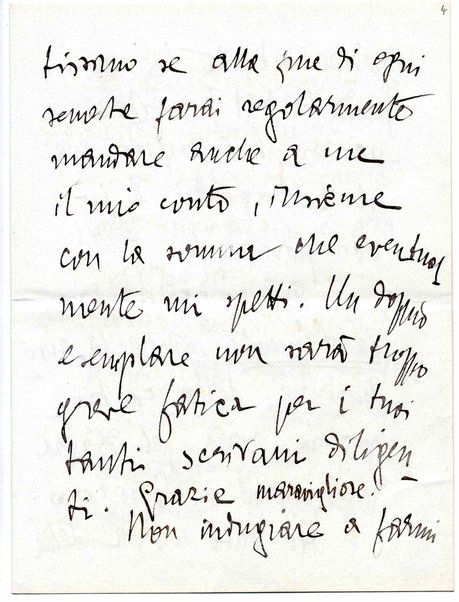 4
tissimo se alla fine di ogni
semestre farai regolarmente
mandare anche a me
il mio conto, insieme
con la somma che eventual
mente mi spetti. Un doppio
esemplare non sarà troppo
grave fatica per i tuoi
tanti scrivani diligen
ti. Grazie maravigliose.
Non indugiare a farmi